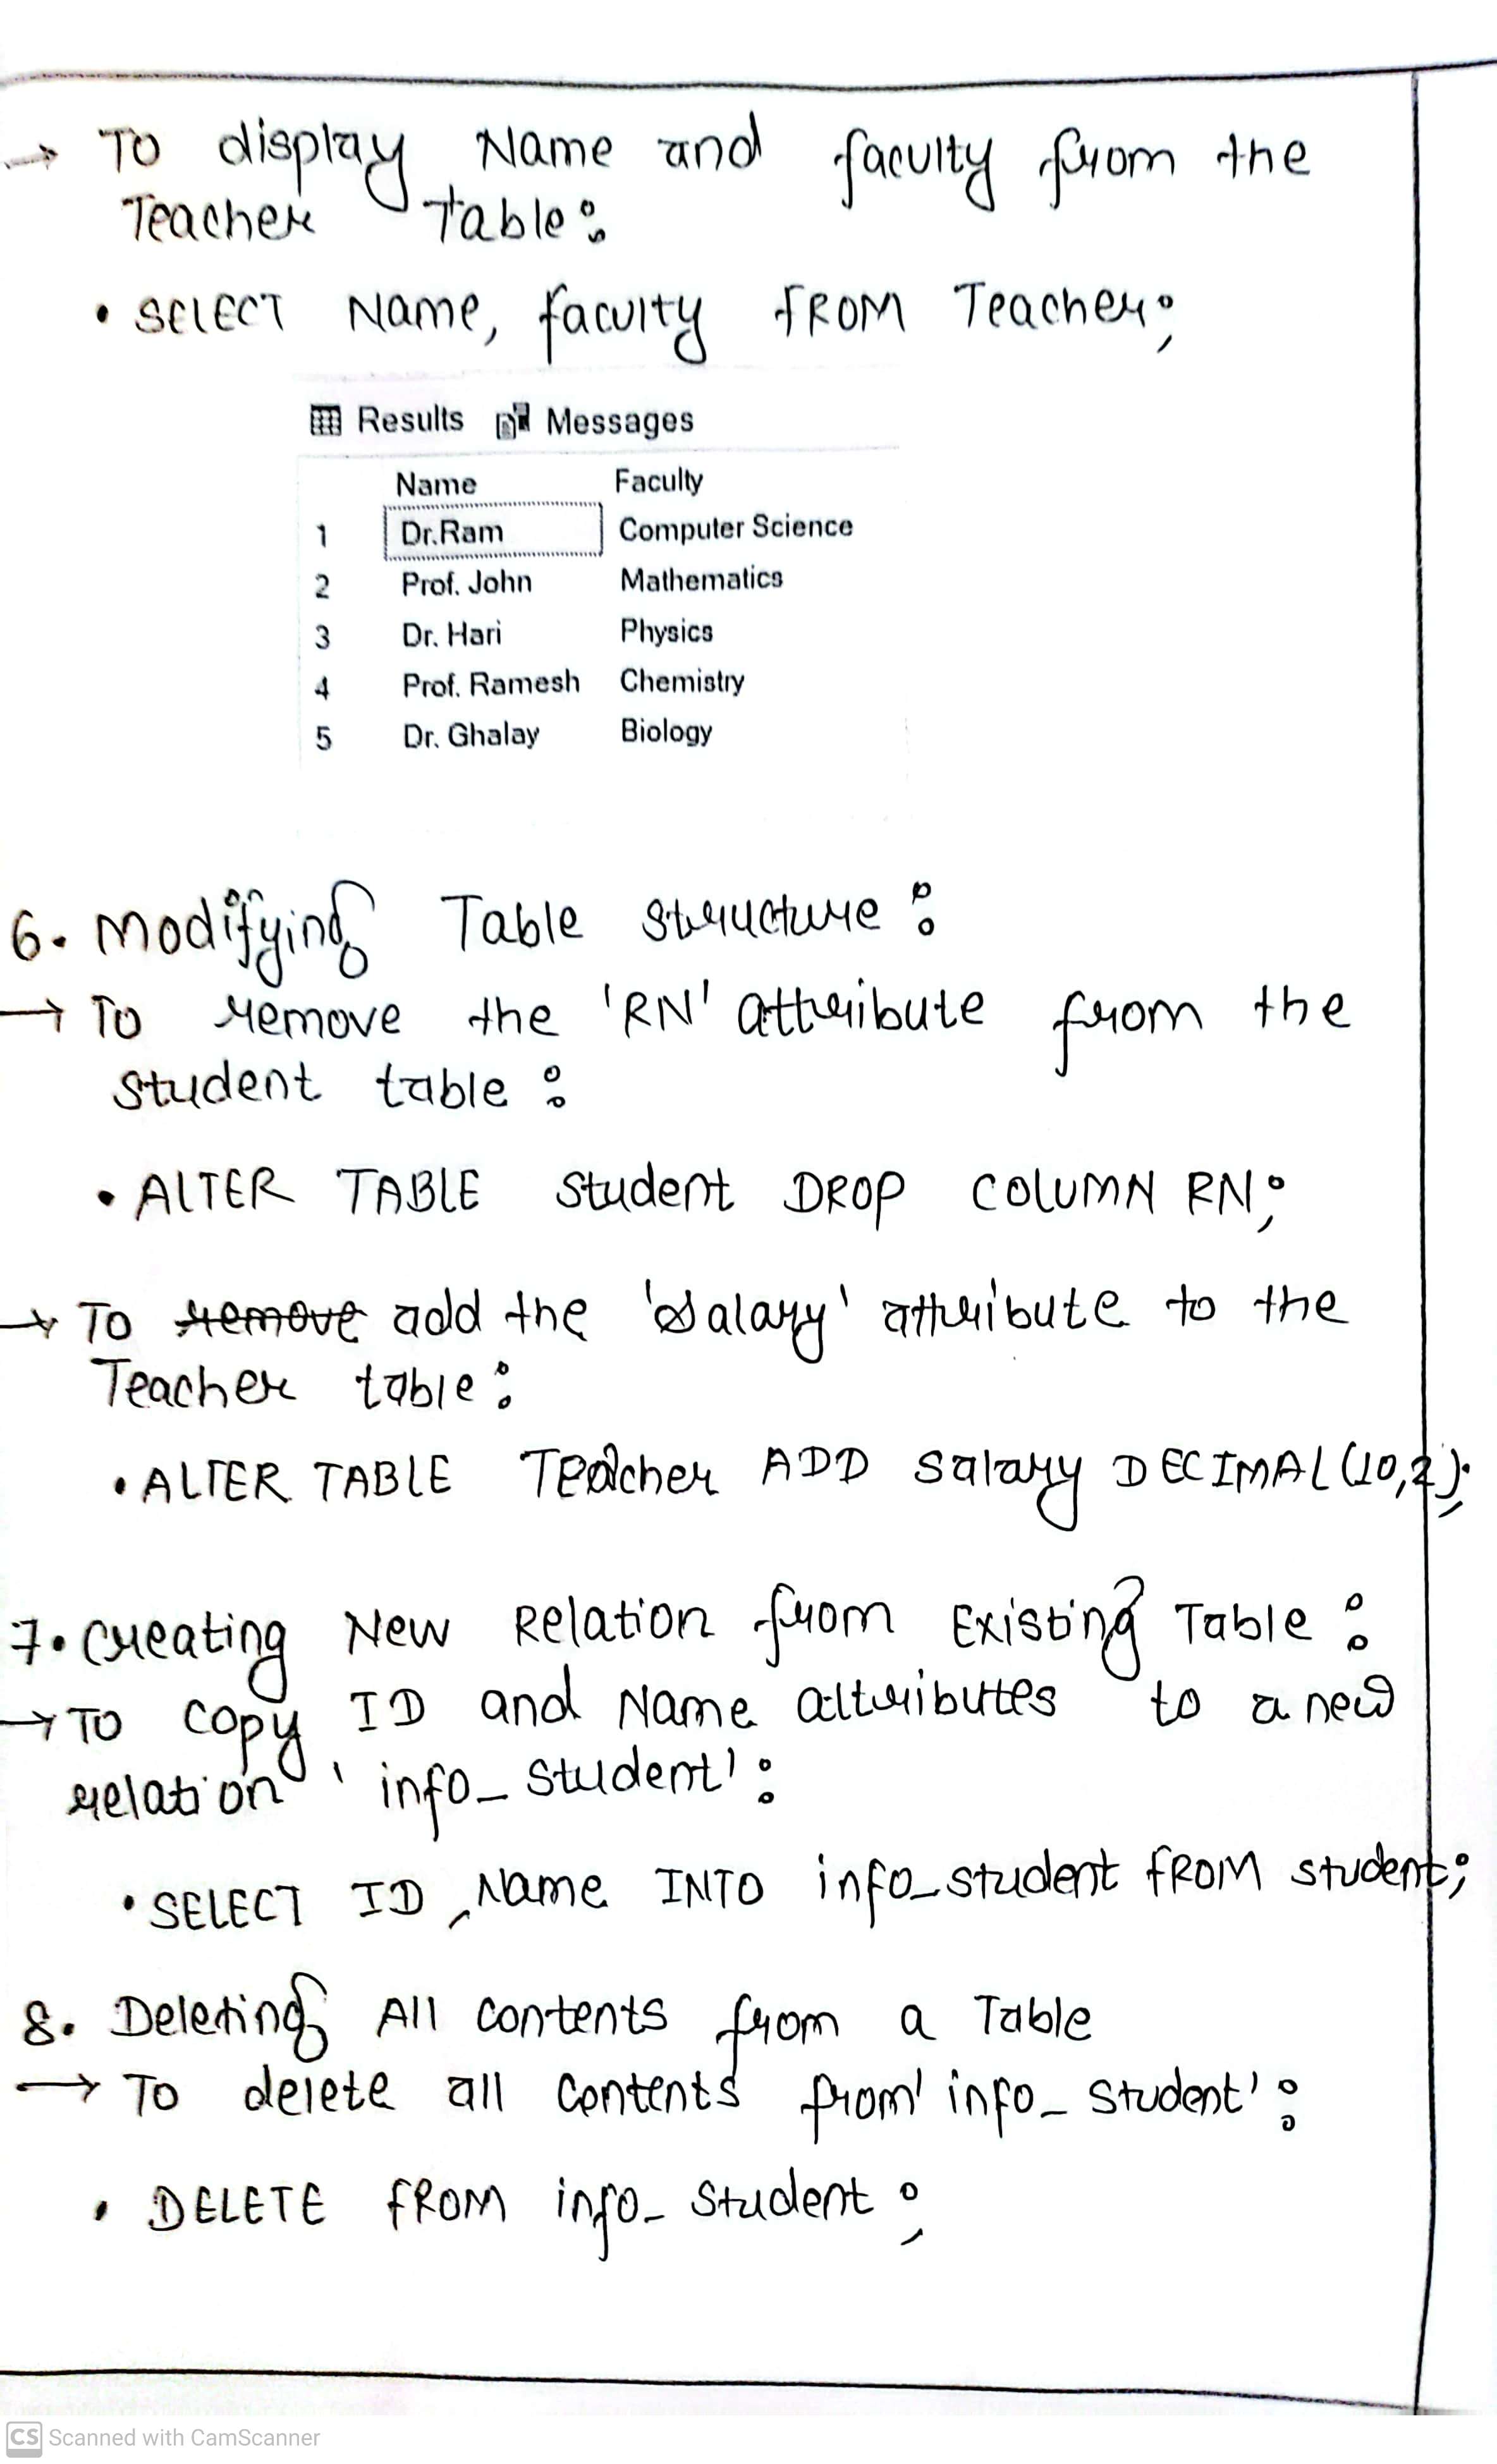 → To display Name and faculty from the
Teacher Table:
• SELECT Name, faculty FROM Teacher;
Results Messages
Name Faculty
1 Dr.Ram Computer Science
2 Prof. John Mathematics
3 Dr. Hari Physics
4 Prof. Ramesh Chemistry
5 Dr. Ghalay Biology
6. Modifying Table structure:
→ To remove the 'RN' attribute from the
student table:
• ALTER TABLE student DROP COLUMN RN;
→ To remove add the 'salary' attribute to the
Teacher table:
• ALTER TABLE Teacher ADD salary DECIMAL(10,2);
7. Creating New Relation from Existing Table:
→ To copy ID and Name attributes to a new
relation 'info_student':
• SELECT ID, Name INTO info_student FROM student;
8. Deleting All contents from a Table
→ To delete all contents from 'info_student':
• DELETE FROM info_student;
CS Scanned with CamScanner